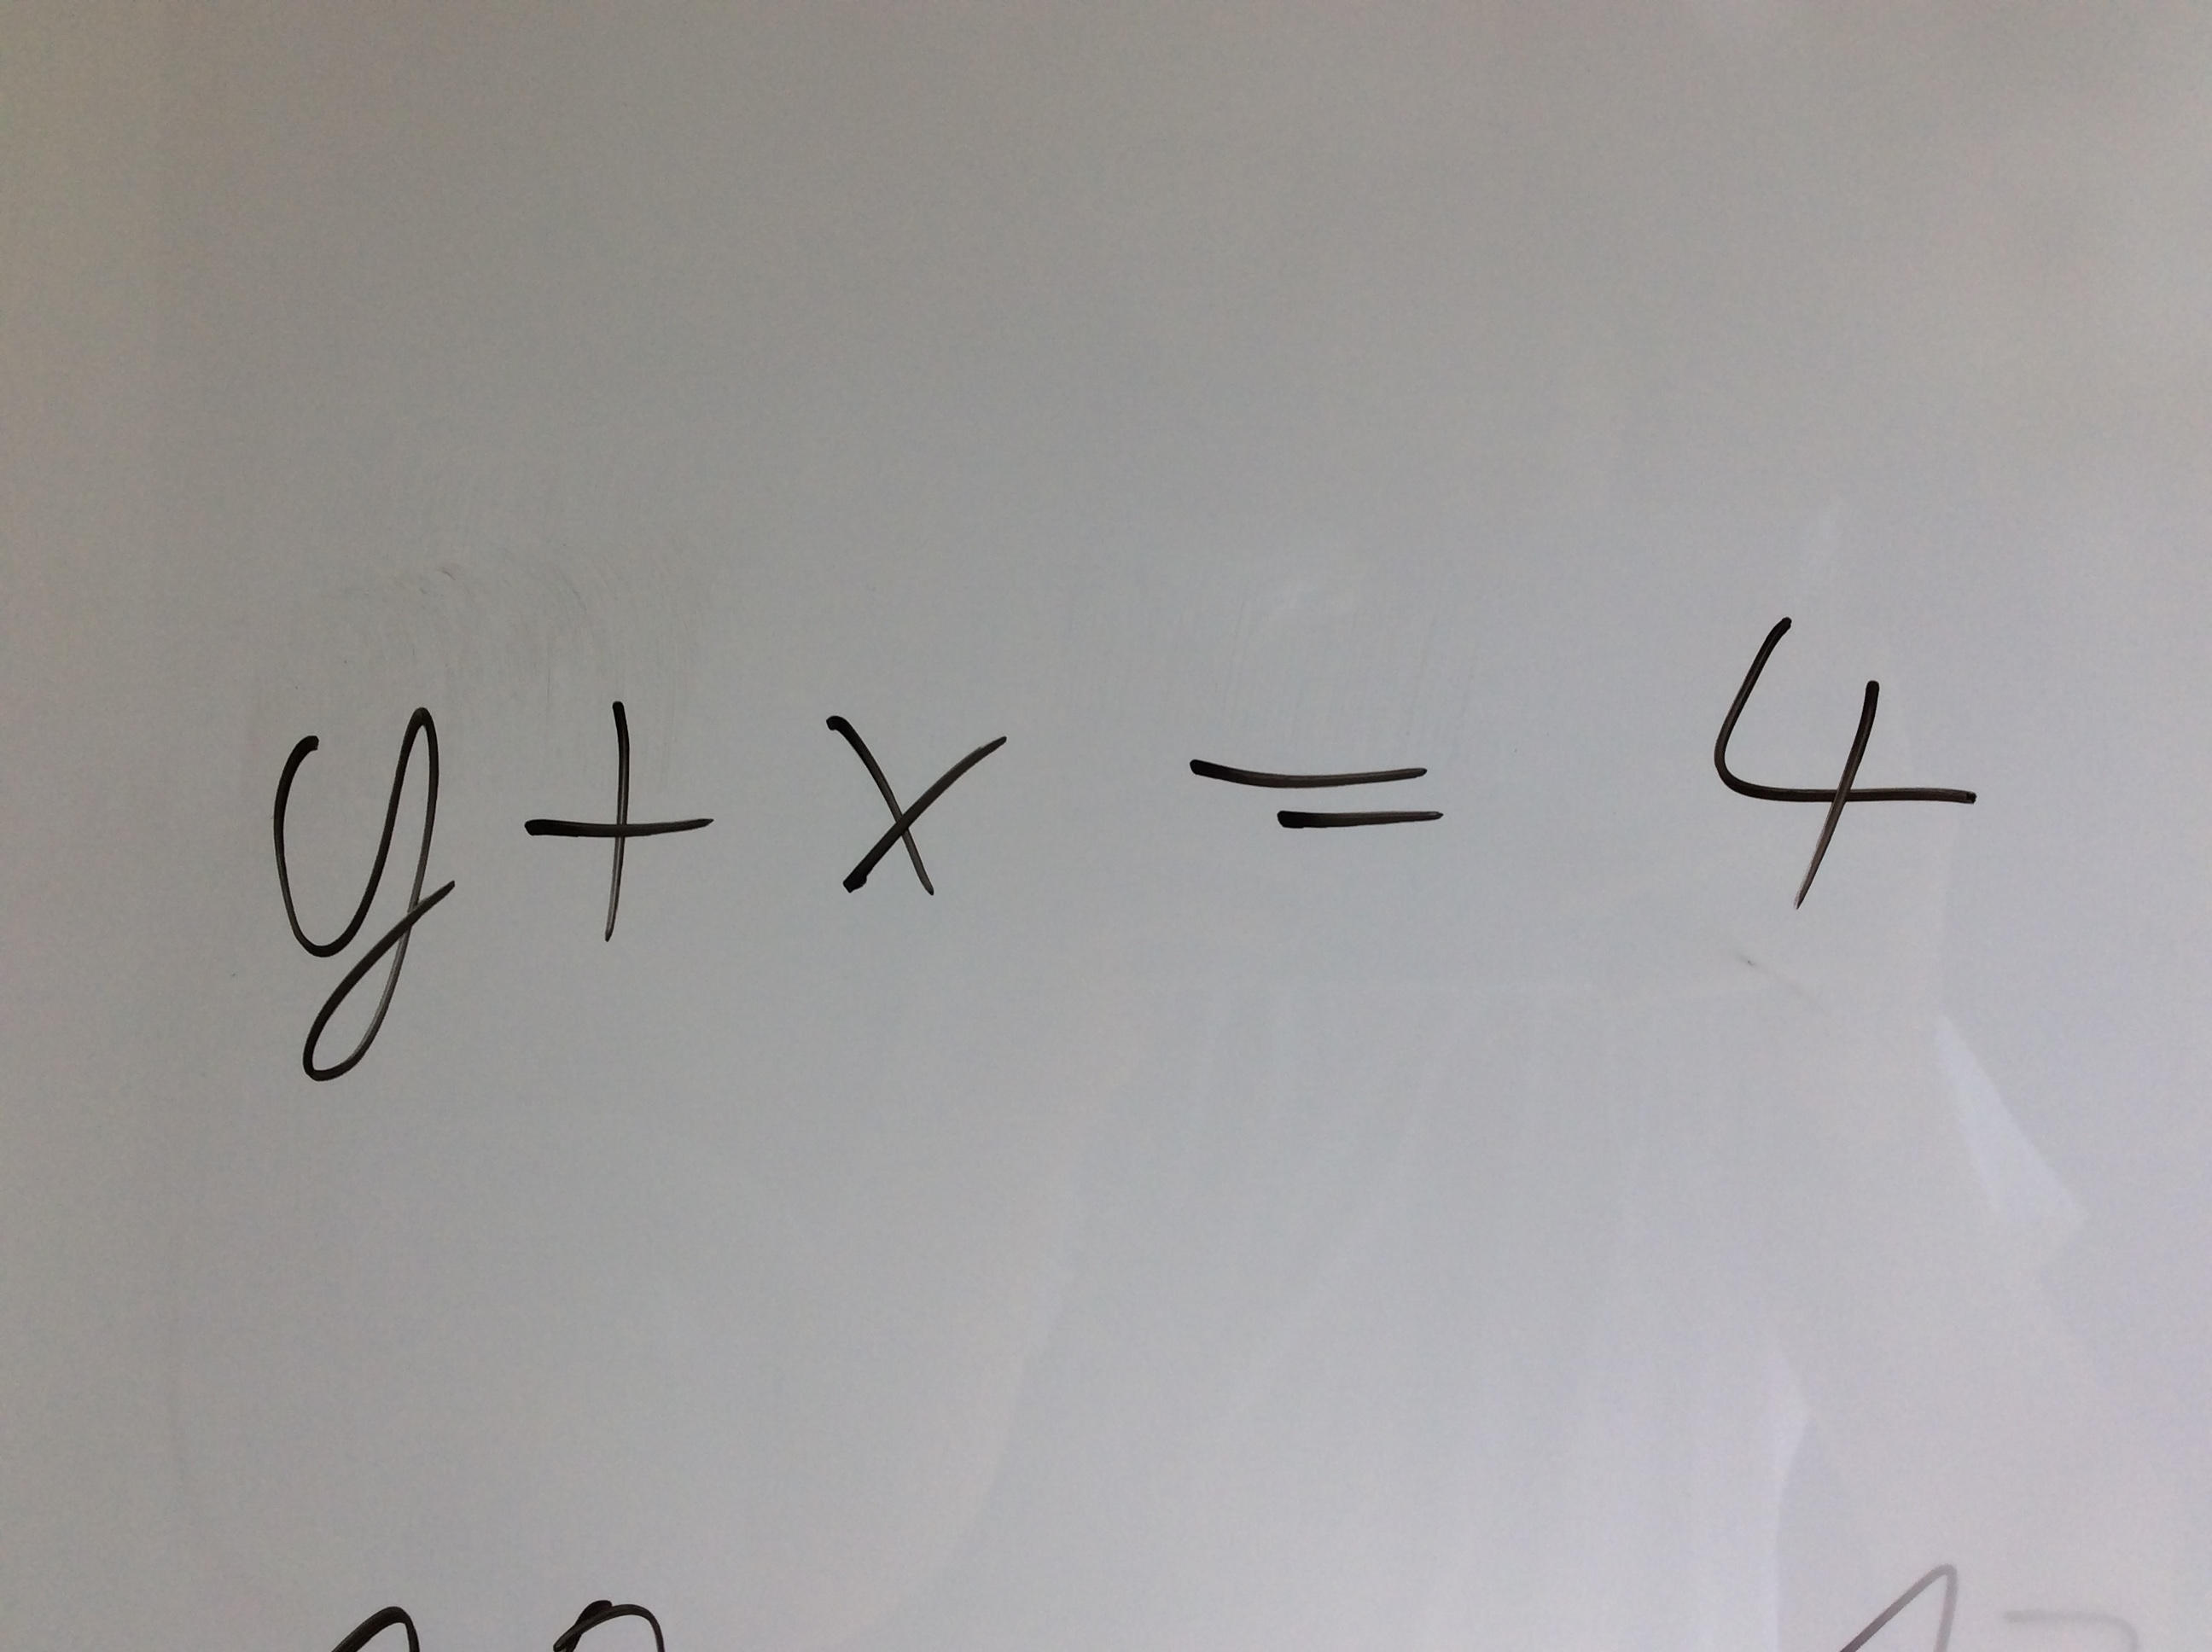 y + x = 4